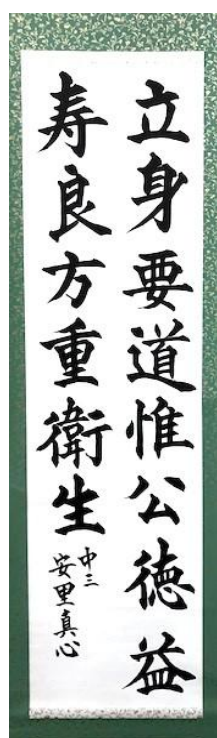 立身要道惟公徳益
寿良方重衛生
中三
安里真心